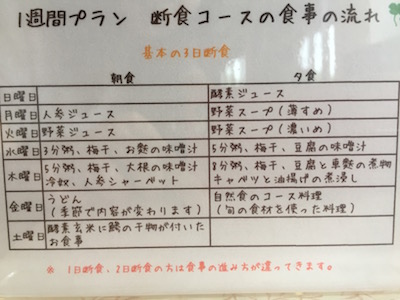 1週間プラン 断食コースの食事の流れ
基本の3日断食
朝食 夕食
日曜日 酵素ジュース
月曜日 人参ジュース 野菜スープ(薄すめ)
火曜日 野菜ジュース 野菜スープ(濃いめ)
水曜日 3分粥、梅干、お麩の味噌汁 5分粥、梅干、豆腐の味噌汁
木曜日 5分粥、梅干、大根の味噌汁 8分粥、梅干、豆腐と車麩の煮物
冷奴、人参シャーベット キャベツと油揚げの煮浸し
金曜日 うどん 自然食のコース料理
(季節で内容が変わります) (旬の食材を使った料理)
土曜日 酵素玄米に鯵の干物が付いた
お食事
※ 1日断食、2日断食の方は食事の進み方が違ってきます。